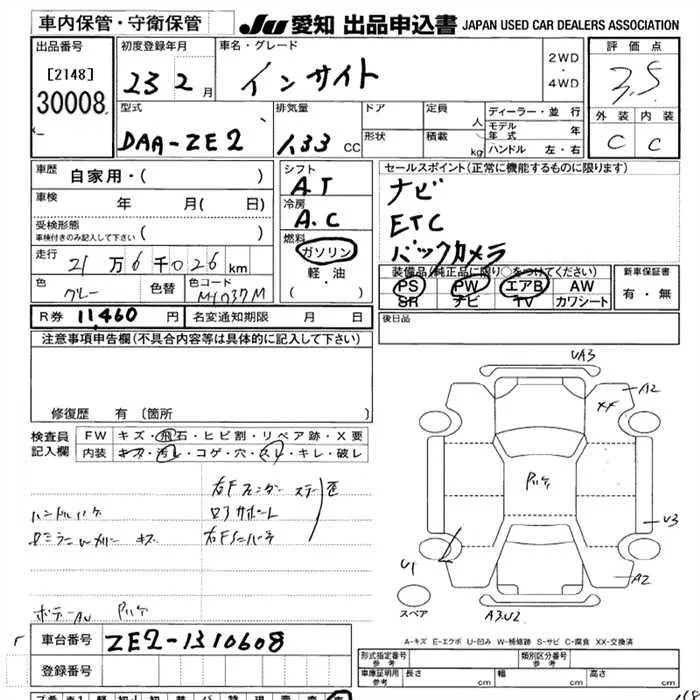 車内保管・守衛保管
JU 愛知 出品申込書 JAPAN USED CAR DEALERS ASSOCIATION
出品番号
[2148]
30008
初度登録年月
23 2 月
車名・グレード
インサイト
2WD
・
4WD
評価点
3.5
外装 内装
C C
型式
DAA-ZE2
排気量
1.33 CC
ドア
形状
定員
人
積載
kg
ディーラー・並行
モデル年式 年
ハンドル 左・右
車歴
自家用・( )
車検
年 月( 日)
受検形態
車検付きのみ記入して下さい ( )
走行
21万6千026km
色
グレー
色替
色コード
シフト
AT
冷房
A.C
燃料
ガソリン
・
軽油
( )
セールスポイント(正常に機能するものに限ります)
ナビ
ETC
バックカメラ
装備品(純正品に限り○をつけてください)
PS PW エアB AW
SR ナビ TV カワシート
新車保証書
有・無
R券 11,460 円
名変通知期限 月 日
後日品
注意事項申告欄(不具合内容等は具体的に記入して下さい)
修復歴 有 〔箇所
検査員
記入欄
FW キズ・飛石・ヒビ割・リペア跡・X要
内装 キズ・汚レ・コゲ・穴・スレ・キレ・破レ
ハンドルハゲ
右Fフェンダー ステー
ロアサポート
キズ
UA3
A2
XX
U3
A2
U1
A3.U2
スペア
A-キズ E-エクボ U-凹み W-補修跡 S-サビ C-腐食 XX-交換済
車台番号
ZE2-1310608
登録番号
形式指定番号
参考
類別区分番号
参考
車庫証明用
参考
長さ cm 幅 cm 高さ cm